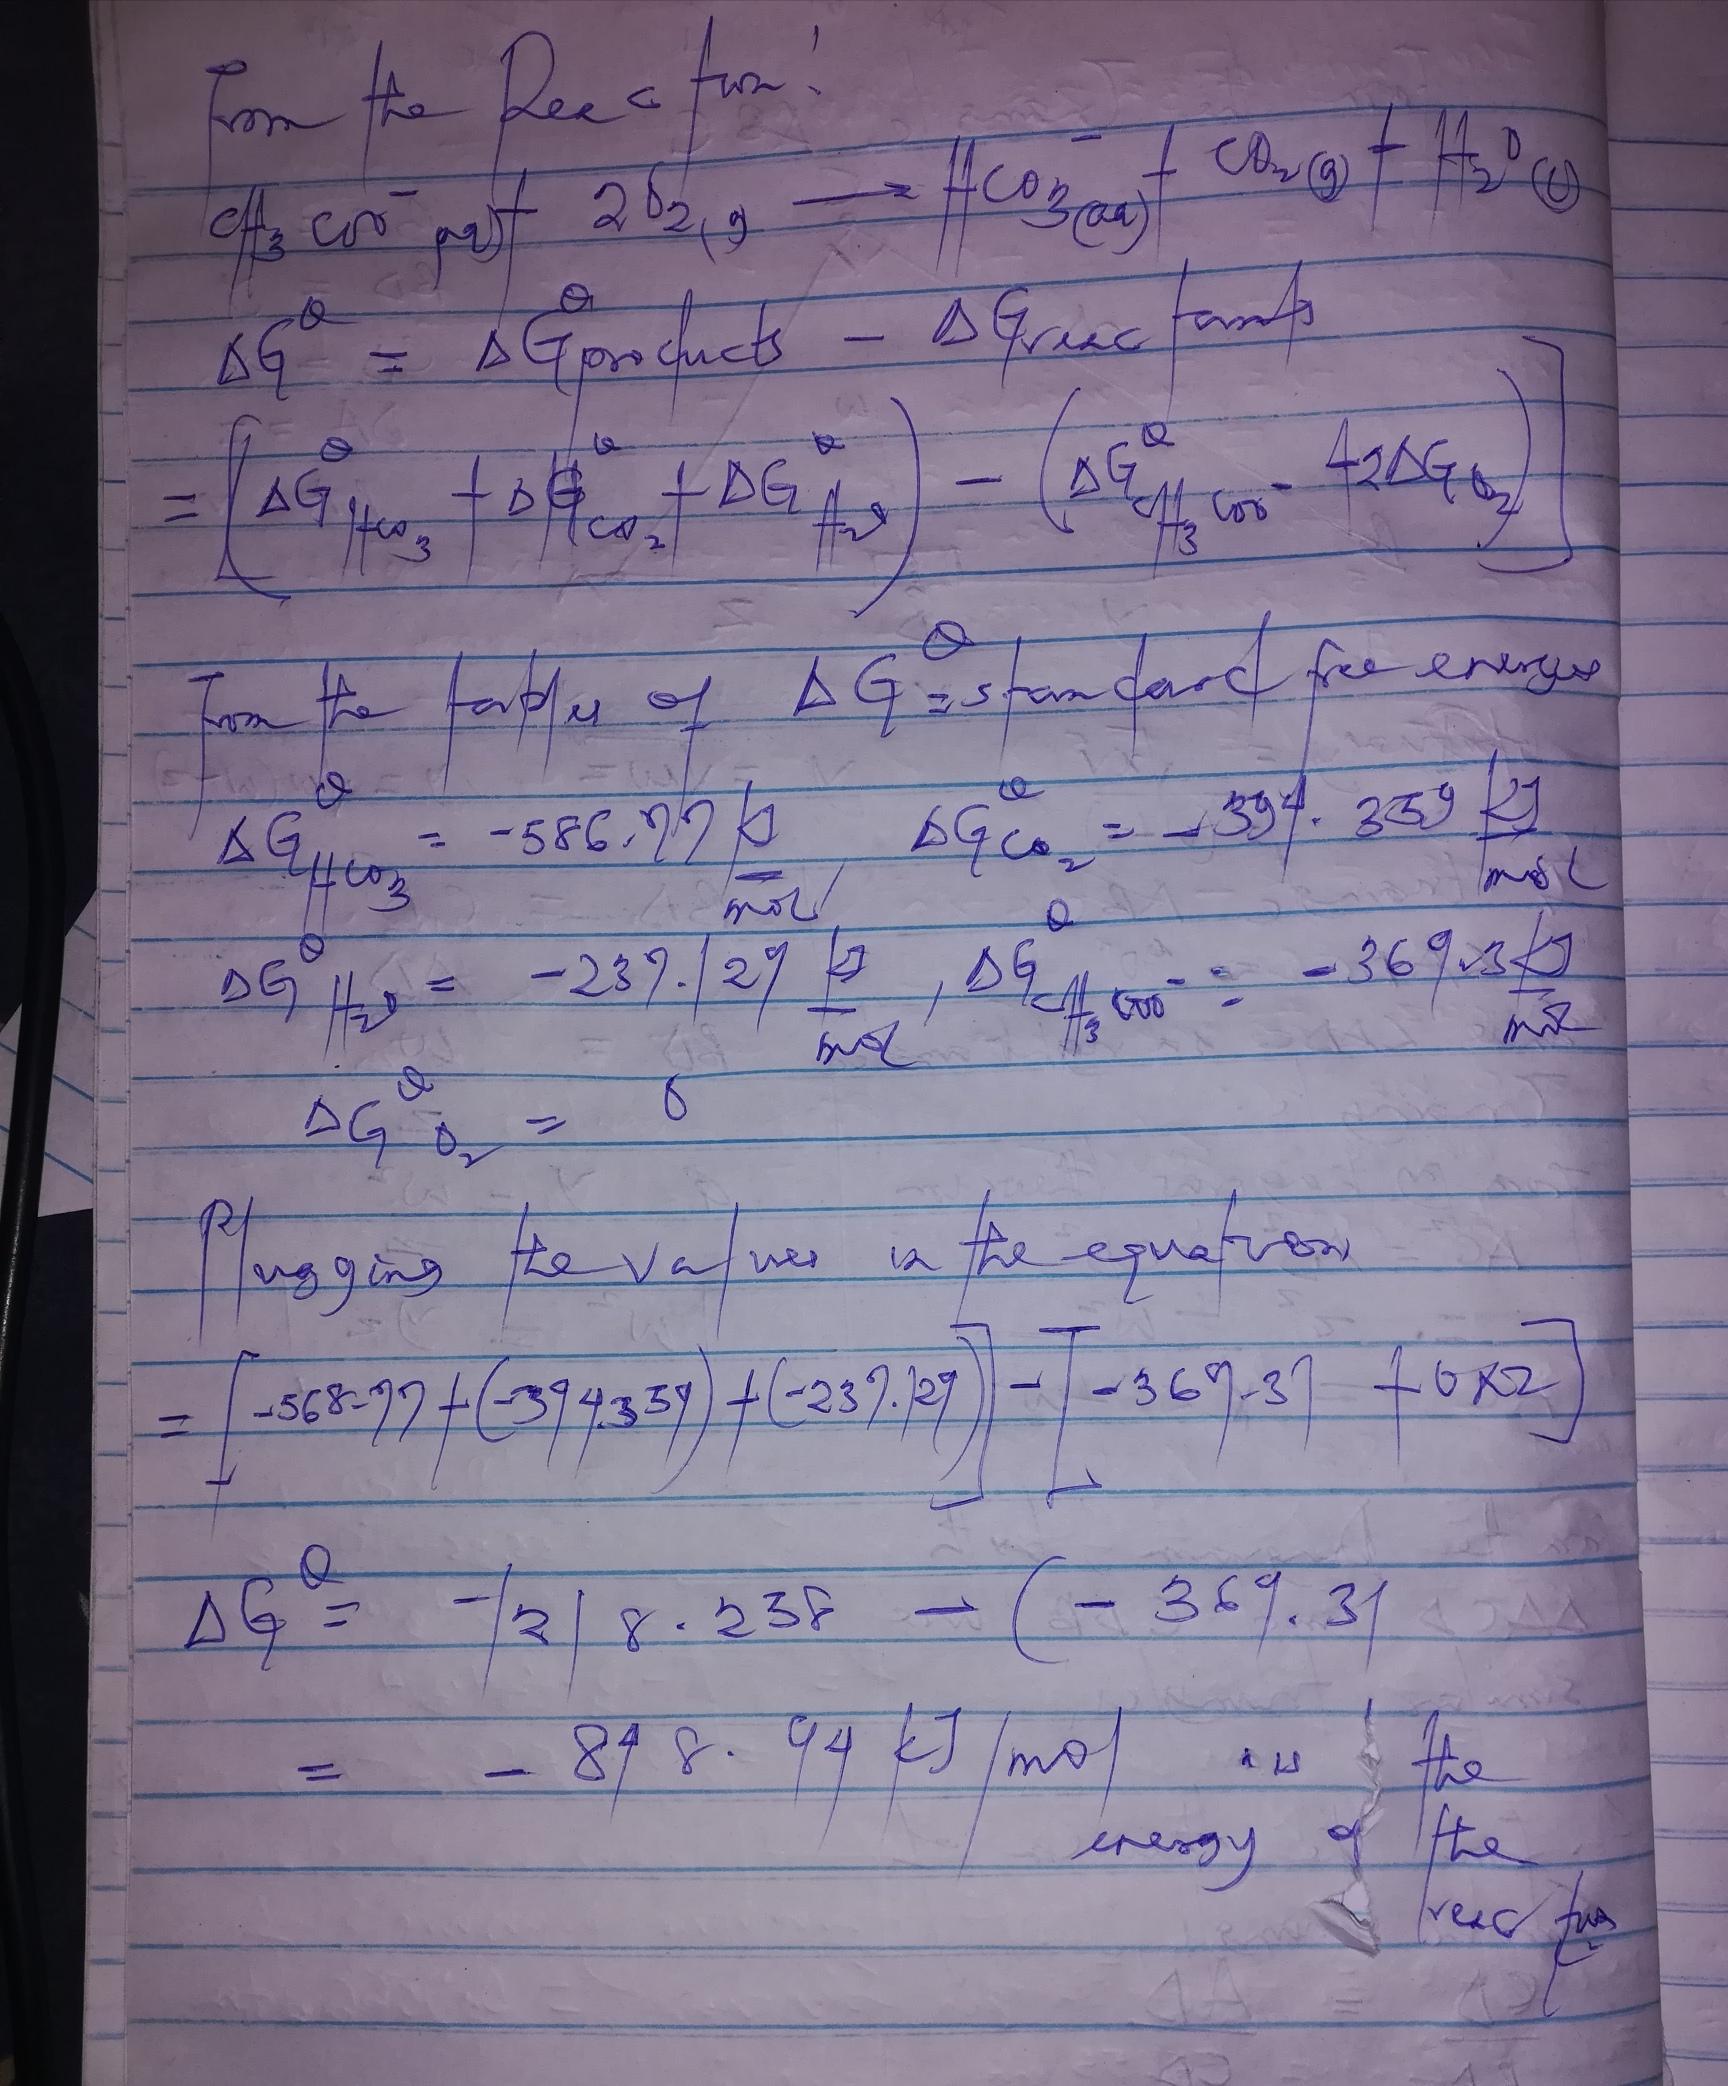 From the Reaction!
CH₃COO⁻(aq) + 2O₂(g → HCO₃⁻(aq) + CO₂(g) + H₂O(l)
ΔG^θ = ΔG^θ products − ΔG reactants
= [(ΔG^θ HCO₃ + ΔG^θ CO₂ + ΔG^θ H₂O) − (ΔG^θ CH₃COO⁻ + 2ΔG O₂)]
From the tables of ΔG^θ = standard free energies
ΔG^θ HCO₃ = -586.77 kJ/mol, ΔG^θ CO₂ = -394.359 kJ/mol
ΔG^θ H₂O = -237.129 kJ/mol, ΔG^θ CH₃COO⁻ = -369.3 kJ/mol
ΔG^θ O₂ = 0
Plugging the values in the equation
= [-568.77 + (-394.359) + (-237.129)] − [-369.31 + 0x2]
ΔG^θ = -1218.238 − (-369.31
= -848.94 kJ/mol is the
energy of the
reaction